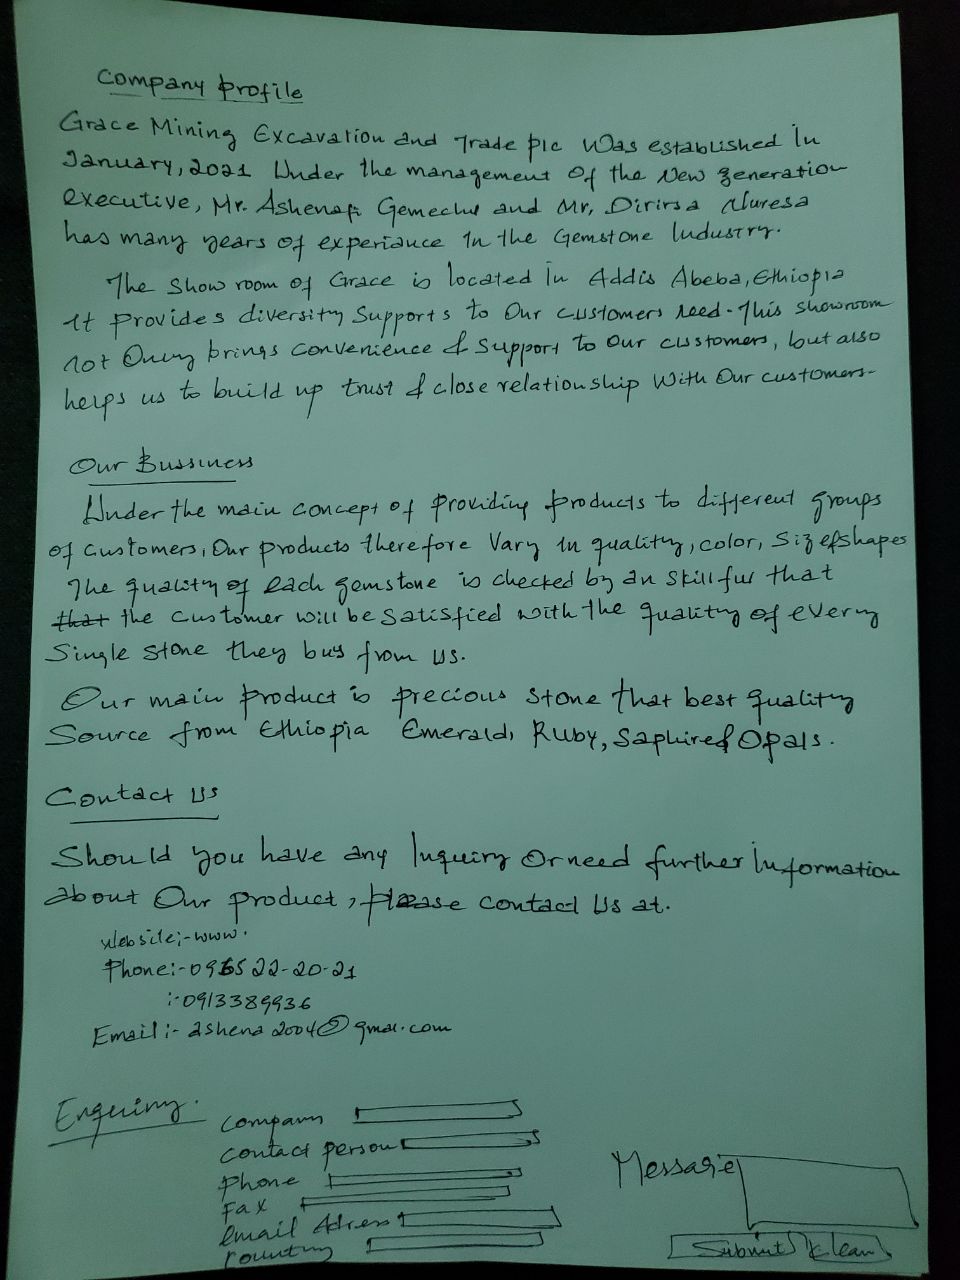 Company Profile
Grace Mining Excavation and Trade plc Was established In
January, 2021 Under the management Of the New generation
executive, Mr. Ashenafi Gemechu and Mr, Dirirsa
has many years of experiance In the Gemstone Industry.
The Show room of Grace is located In Addis Abeba, Ethiopia
It Provides diversity Supports to Our customers need. This showroom
not Only brings convenience & Support to Our customers, but also
helps us to build up trust & close relationship With Our customers-
Our Bussiness
Under the main concept of Providing products to different groups
of customers, Our products therefore Vary in quality, color, Size & shapes
The quality of each gemstone is checked by an skillful that
that the customer will be Satisfied with the quality of every
Single stone they buy from us.
Our main product is precious stone that best quality
Source from Ethiopia Emerald, Ruby, Saphire & Opals.
Contact Us
Should you have any Inquiry Or need further Information
about Our product, please contact Us at.
Website:-www.
Phone:- 22-20-21
:-0913389936
Email:- ashena2004@gmai.com
Enquiry.
Company
Contact person
Phone
Fax
email Adress
Country
Message
Submit Klean